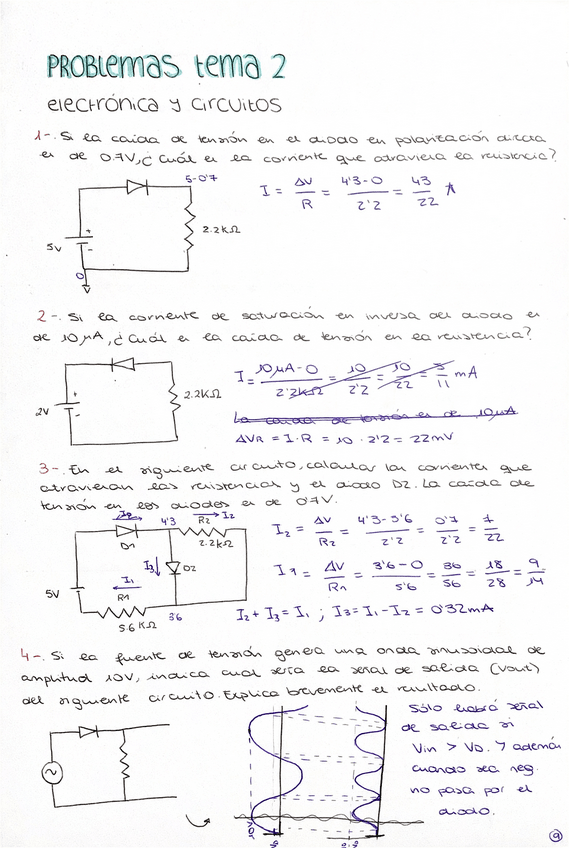 PROBLEMAS tema 2
electrónica y circuitos
1-. Si la caída de tensión en el diodo en polarización directa
es de 0.7V, ¿Cuál es la corriente que atraviesa la resistencia?
5-0'7
I = ΔV/R = 4'3-0/2'2 = 43/22 A
2.2KΩ
5V
0
2-. Si la corriente de saturación en inversa del diodo es
de 10μA, ¿Cuál es la caída de tensión en la resistencia?
I = 10μA-0/2'2KΩ = 10/2'2 = 10/22 = 5/11 mA
2.2KΩ
2V
La caída de tensión es de 10μA
ΔVR = I·R = 10·2'2 = 22mV
3-. En el siguiente circuito, calcular las corrientes que
atraviesan las resistencias y el diodo D2. La caída de
tensión en los diodos es de 0'7V.
4'3 R2 I2
D1 2.2KΩ
I2 = ΔV/R2 = 4'3-3'6/2'2 = 0'7/2'2 = 7/22
I3 D2
I1
5V R1
I1 = ΔV/R1 = 3'6-0/5'6 = 36/56 = 18/28 = 9/14
5.6 KΩ 3'6
I2 + I3 = I1 ; I3 = I1 - I2 = 0'32mA
4-. Si la fuente de tensión genera una onda sinusoidal de
amplitud 10V, indica cual sería la señal de salida (Vout)
del siguiente circuito. Explica brevemente el resultado.
Sólo habrá señal
de salida si
Vin > VD. Y además
cuando sea neg.
no pasa por el
diodo.
9